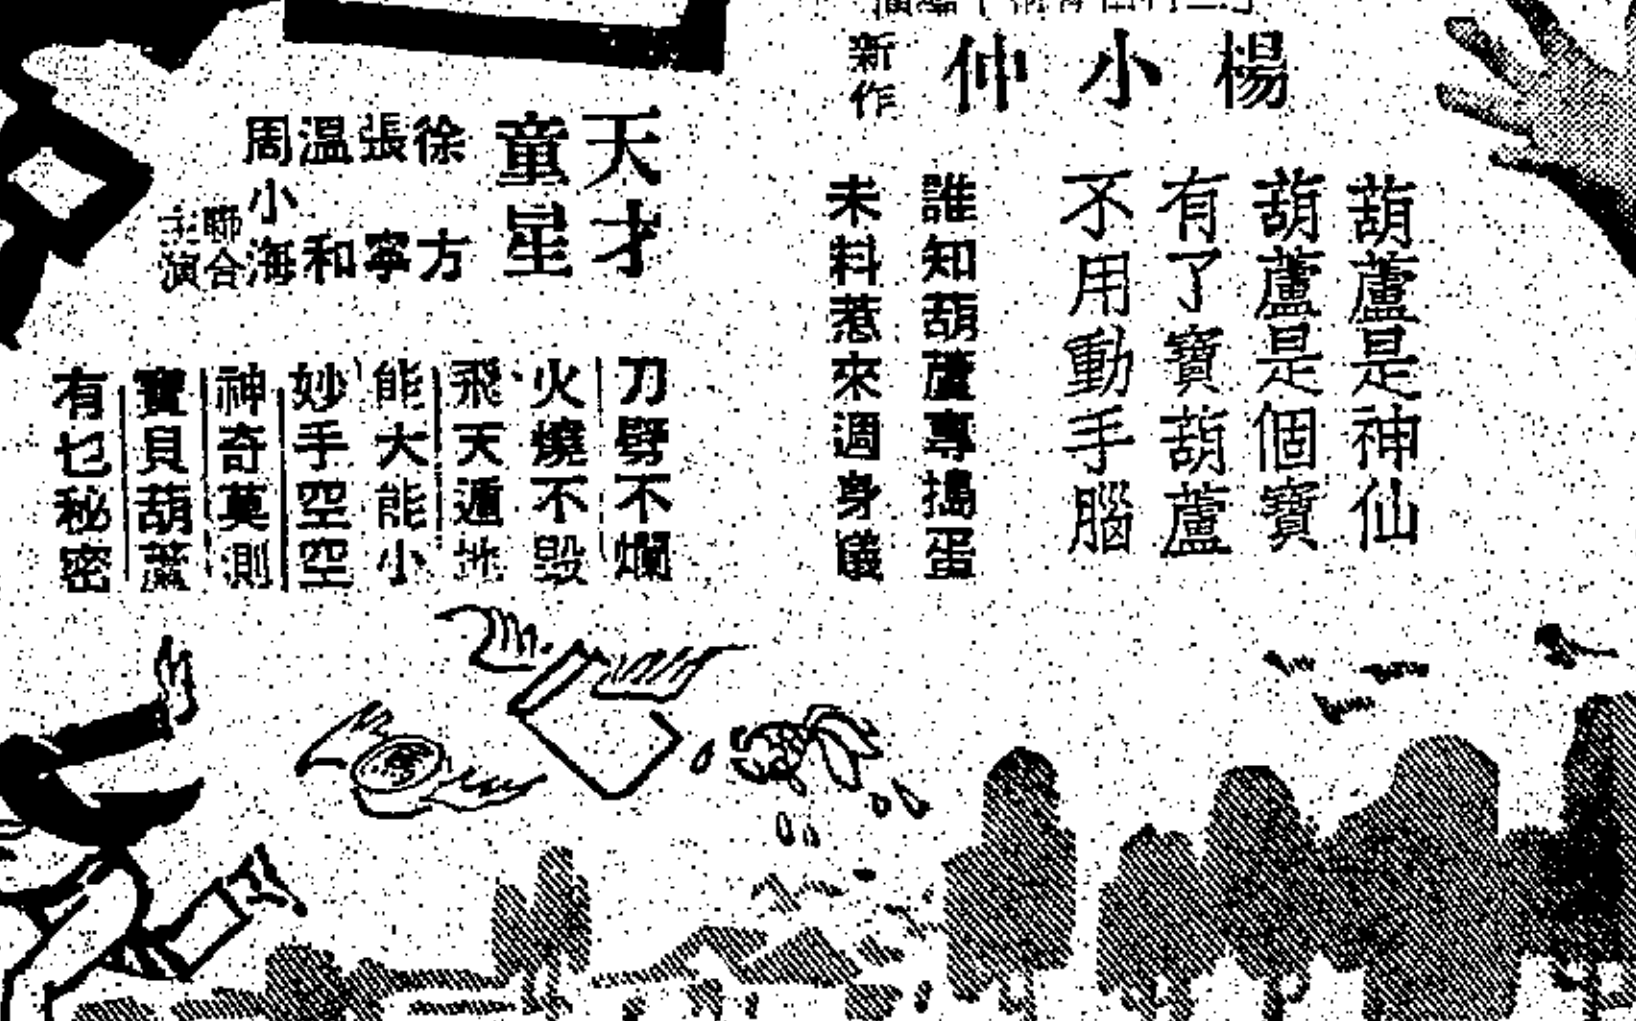 楊小仲
新作
葫蘆是神仙
葫蘆是個寶
有了寶葫蘆
不用動手腦
誰知葫蘆專搗蛋
未料惹來週身蟻
天才
童星
徐方
張寧
溫和
周小海
聯合
主演
刀劈不爛
火燒不毀
飛天遁地
能大能小
妙手空空
神奇莫測
寶貝葫蘆
有乜秘密